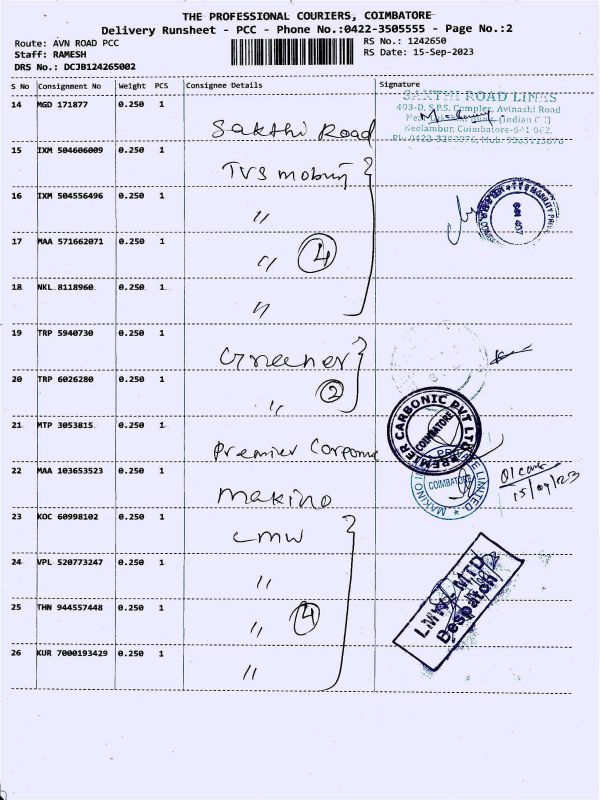 THE PROFESSIONAL COURIERS, COIMBATORE
Delivery Runsheet - PCC - Phone No.:0422-3505555 - Page No.:2
Route: AVN ROAD PCC
Staff: RAMESH
DRS No.: DCJB124265002
RS No.: 1242650
RS Date: 15-Sep-2023
S No Consignment No Weight PCS Consignee Details Signature
14 MGD 171877 0.250 1 Sakthi Road
SAKTHI ROAD LINES
493-D, S.P.S. Complex, Avinashi Road
Neelambur, Coimbatore-641 062.
15 IXM 504606009 0.250 1 TVS mobility
16 IXM 504556496 0.250 1 "
17 MAA 571662071 0.250 1 " 4
18 NKL 8118960 0.250 1 "
19 TRP 5940730 0.250 1 Greener
20 TRP 6026280 0.250 1 " 2
21 MTP 3053815 0.250 1 Premier
PREMIER CARBONIC PVT LTD
COIMBATORE
22 MAA 103653523 0.250 1 Makino
MAKINO LIMITED
COIMBATORE
15/09/23
23 KOC 60998102 0.250 1 LMW
24 VPL 520773247 0.250 1 "
25 THN 944557448 0.250 1 " 4
26 KUR 7000193429 0.250 1 "
LMW-MTD
Despatch